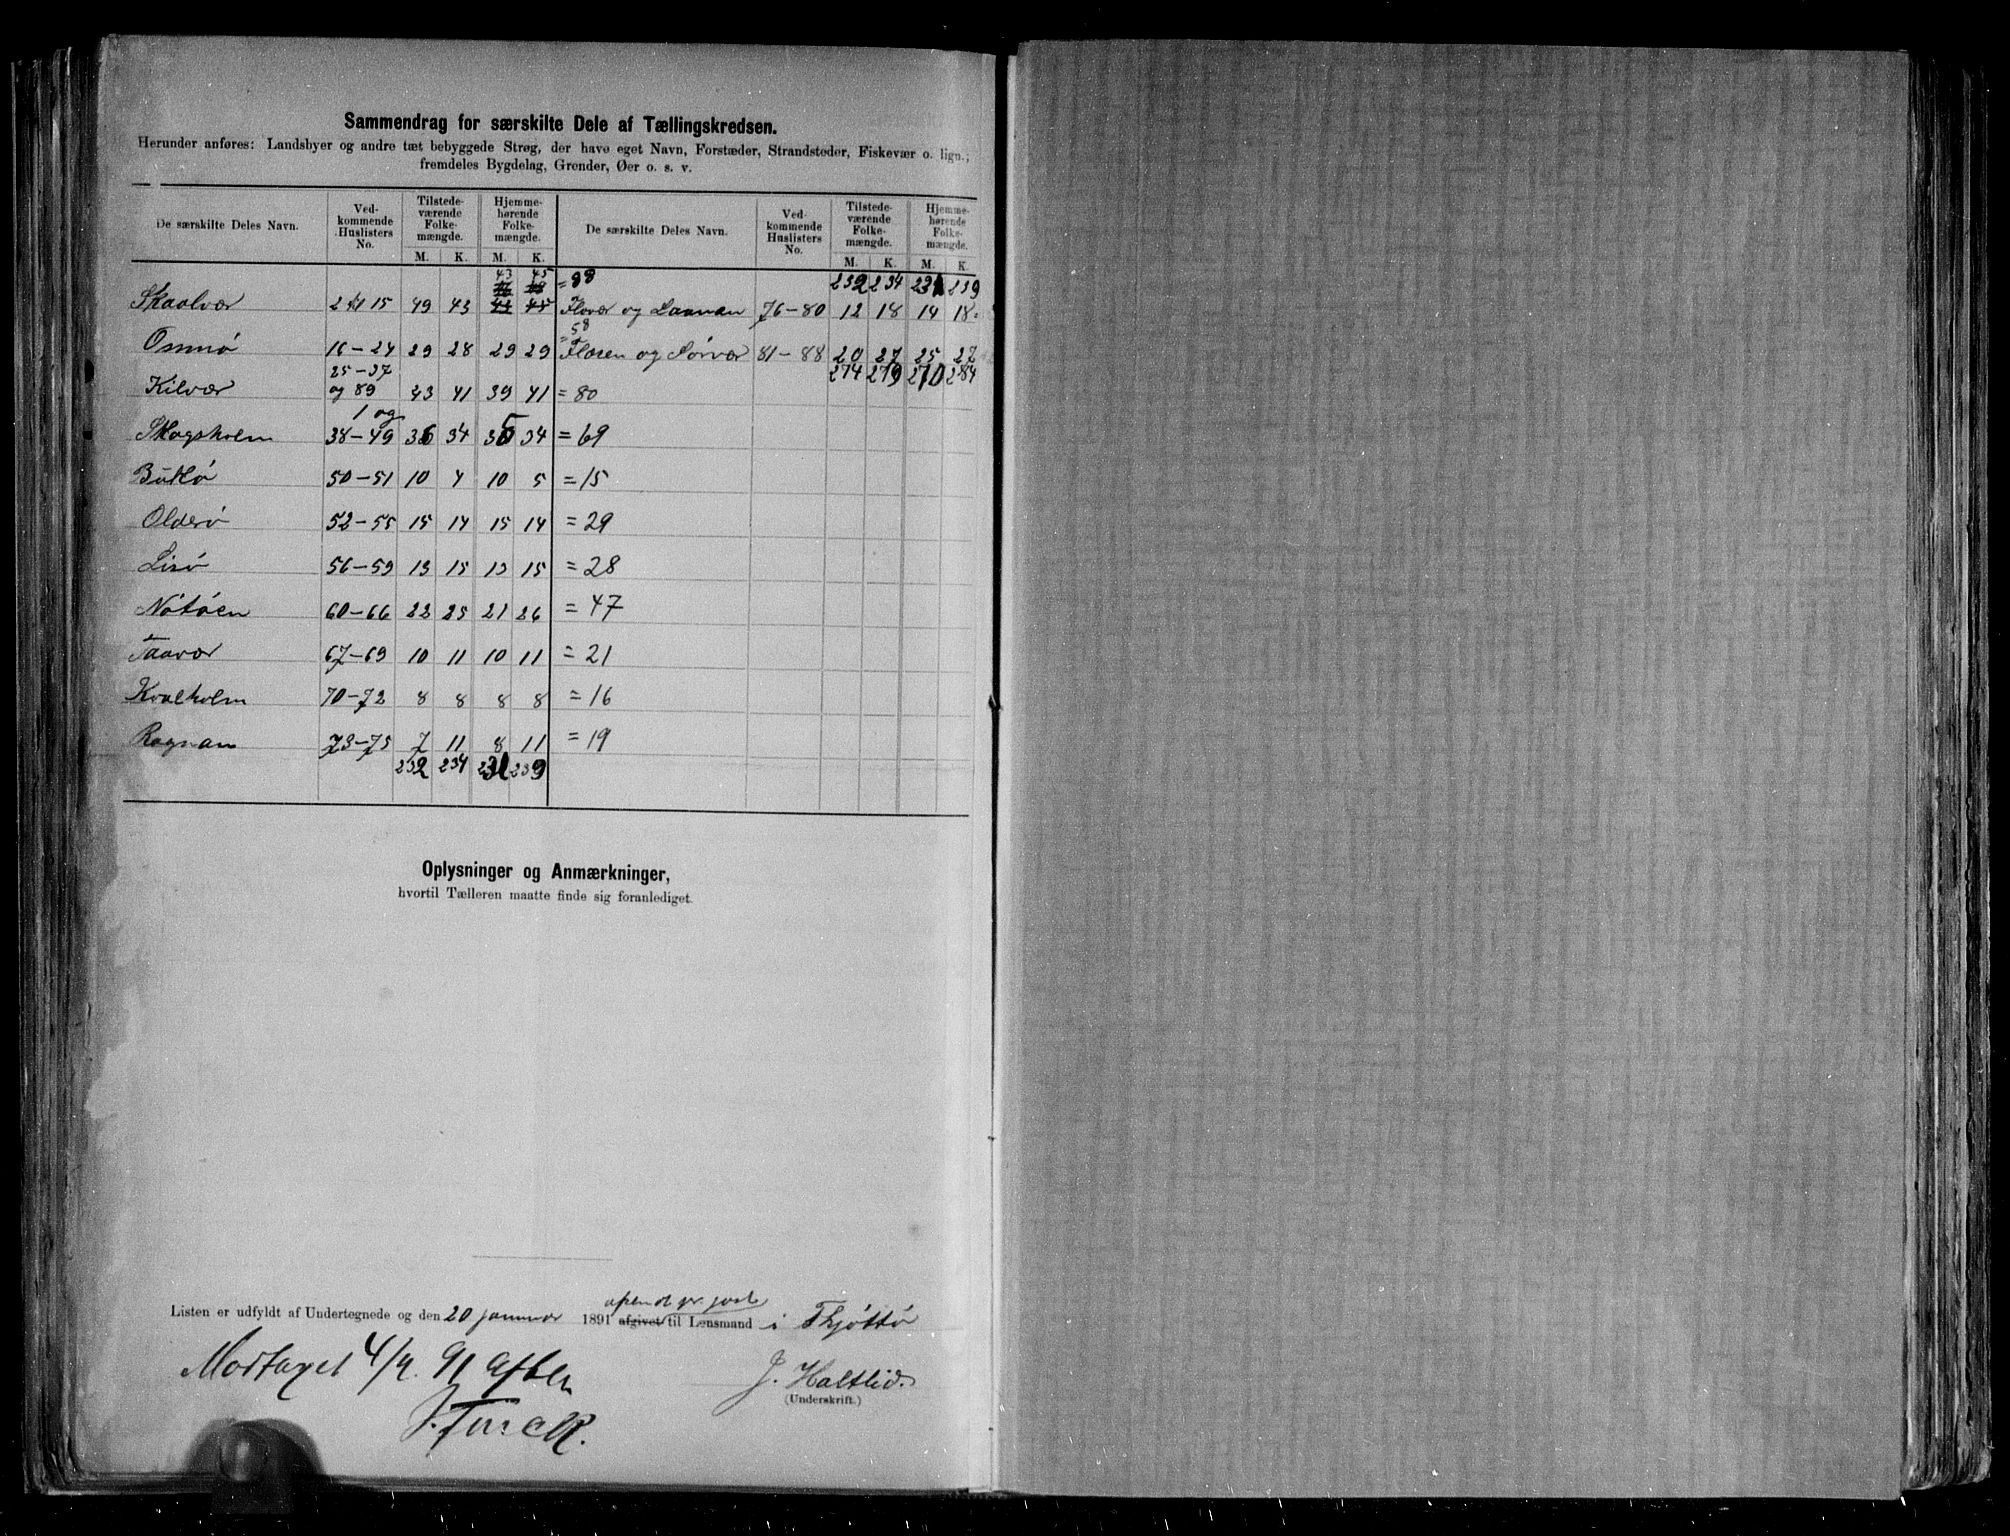 Sammendrag for særskilte Dele af Tællingskredsen.
Herunder anføres: Landsbyer og andre tæt bebyggede Strøg, der have eget Navn, Forstæder, Strandsteder, Fiskevær o. lign.;
fremdeles Bygdelag, Grender, Øer o. s. v.
De særskilte Deles Navn. Ved-kommende Huslisters No. Tilstede-værende Folke-mængde. Hjemme-hørende Folke-mængde. De særskilte Deles Navn. Ved-kommende Huslisters No. Tilstede-værende Folke-mængde. Hjemme-hørende Folke-mængde.
M. K. M. K. M. K. M. K.
43 45 = 88 232 234 231 239
Skaalvær 2 15 49 43 43 45 Flovær og Laanan 76-80 12 18 14 18
58
Osmnø 16-24 29 28 29 29 = Flæsen og Sørvær 81-88 20 27 25 27
25-37 274 279 270 284
Kilvær og 89 43 41 39 41 = 80
1 og
Skogsholm 38-49 36 34 35 34 = 69
Buklø 50-51 10 4 10 5 = 15
Olderø 52-55 15 14 15 14 = 29
Lisø 56-59 13 15 13 15 = 28
Nøtøen 60-66 22 25 21 26 = 47
Taavær 67-69 10 11 10 11 = 21
Kvalholm 70-72 8 8 8 8 = 16
Rognan 73-75 7 11 8 11 = 19
232 234 231 239
Oplysninger og Anmærkninger,
hvortil Tælleren maatte finde sig foranlediget.
afsendt pr. post
Listen er udfyldt af Undertegnede og den 20 januar 1891 afgivet til Lensmand i Thjøttø
Modtaget 4/2. 91
J. Haltlid.
(Underskrift.)